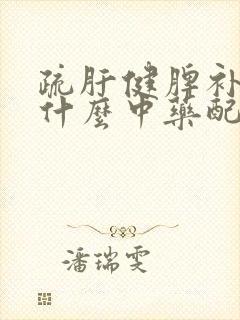 疏肝健脾补
什麼中藥配
潘瑞雯